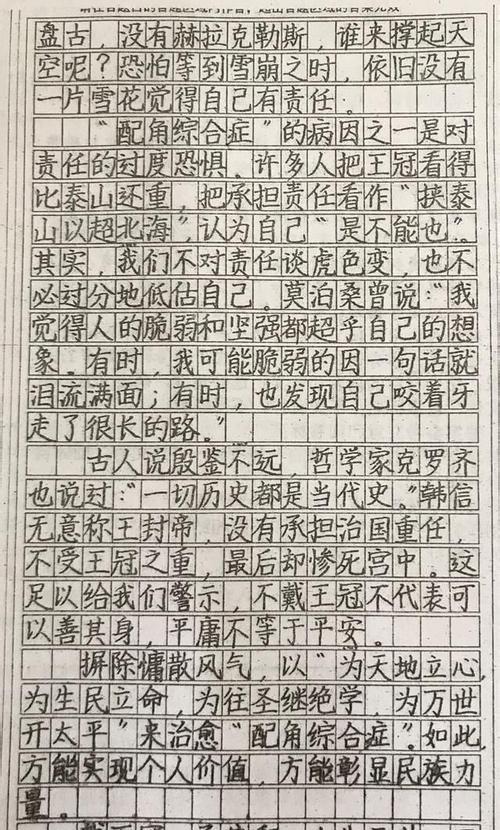 请在各题目的答题区域内作答，超出答题区域的答案无效
盘古，没有赫拉克勒斯，谁来撑起天
空呢？恐怕等到雪崩之时，依旧没有
一片雪花觉得自己有责任。
“配角综合症”的病因之一是对
责任的过度恐惧。许多人把王冠看得
比泰山还重，把承担责任看作“挟泰
山以超北海”，认为自己“是不能也”。
其实，我们不对责任谈虎色变，也不
必过分地低估自己。莫泊桑曾说：“我
觉得人的脆弱和坚强都超乎自己的想
象。有时，我可能脆弱的因一句话就
泪流满面；有时，也发现自己咬着牙
走了很长的路。”
古人说殷鉴不远，哲学家克罗齐
也说过：“一切历史都是当代史。”韩信
无意称王封帝，没有承担治国重任，
不受王冠之重，最后却惨死宫中。这
足以给我们警示，不戴王冠不代表可
以善其身，平庸不等于平安。
摒除慵散风气，以“为天地立心，
为生民立命，为往圣继绝学，为万世
开太平”来治愈“配角综合症”。如此，
方能实现个人价值，方能彰显民族力
量。